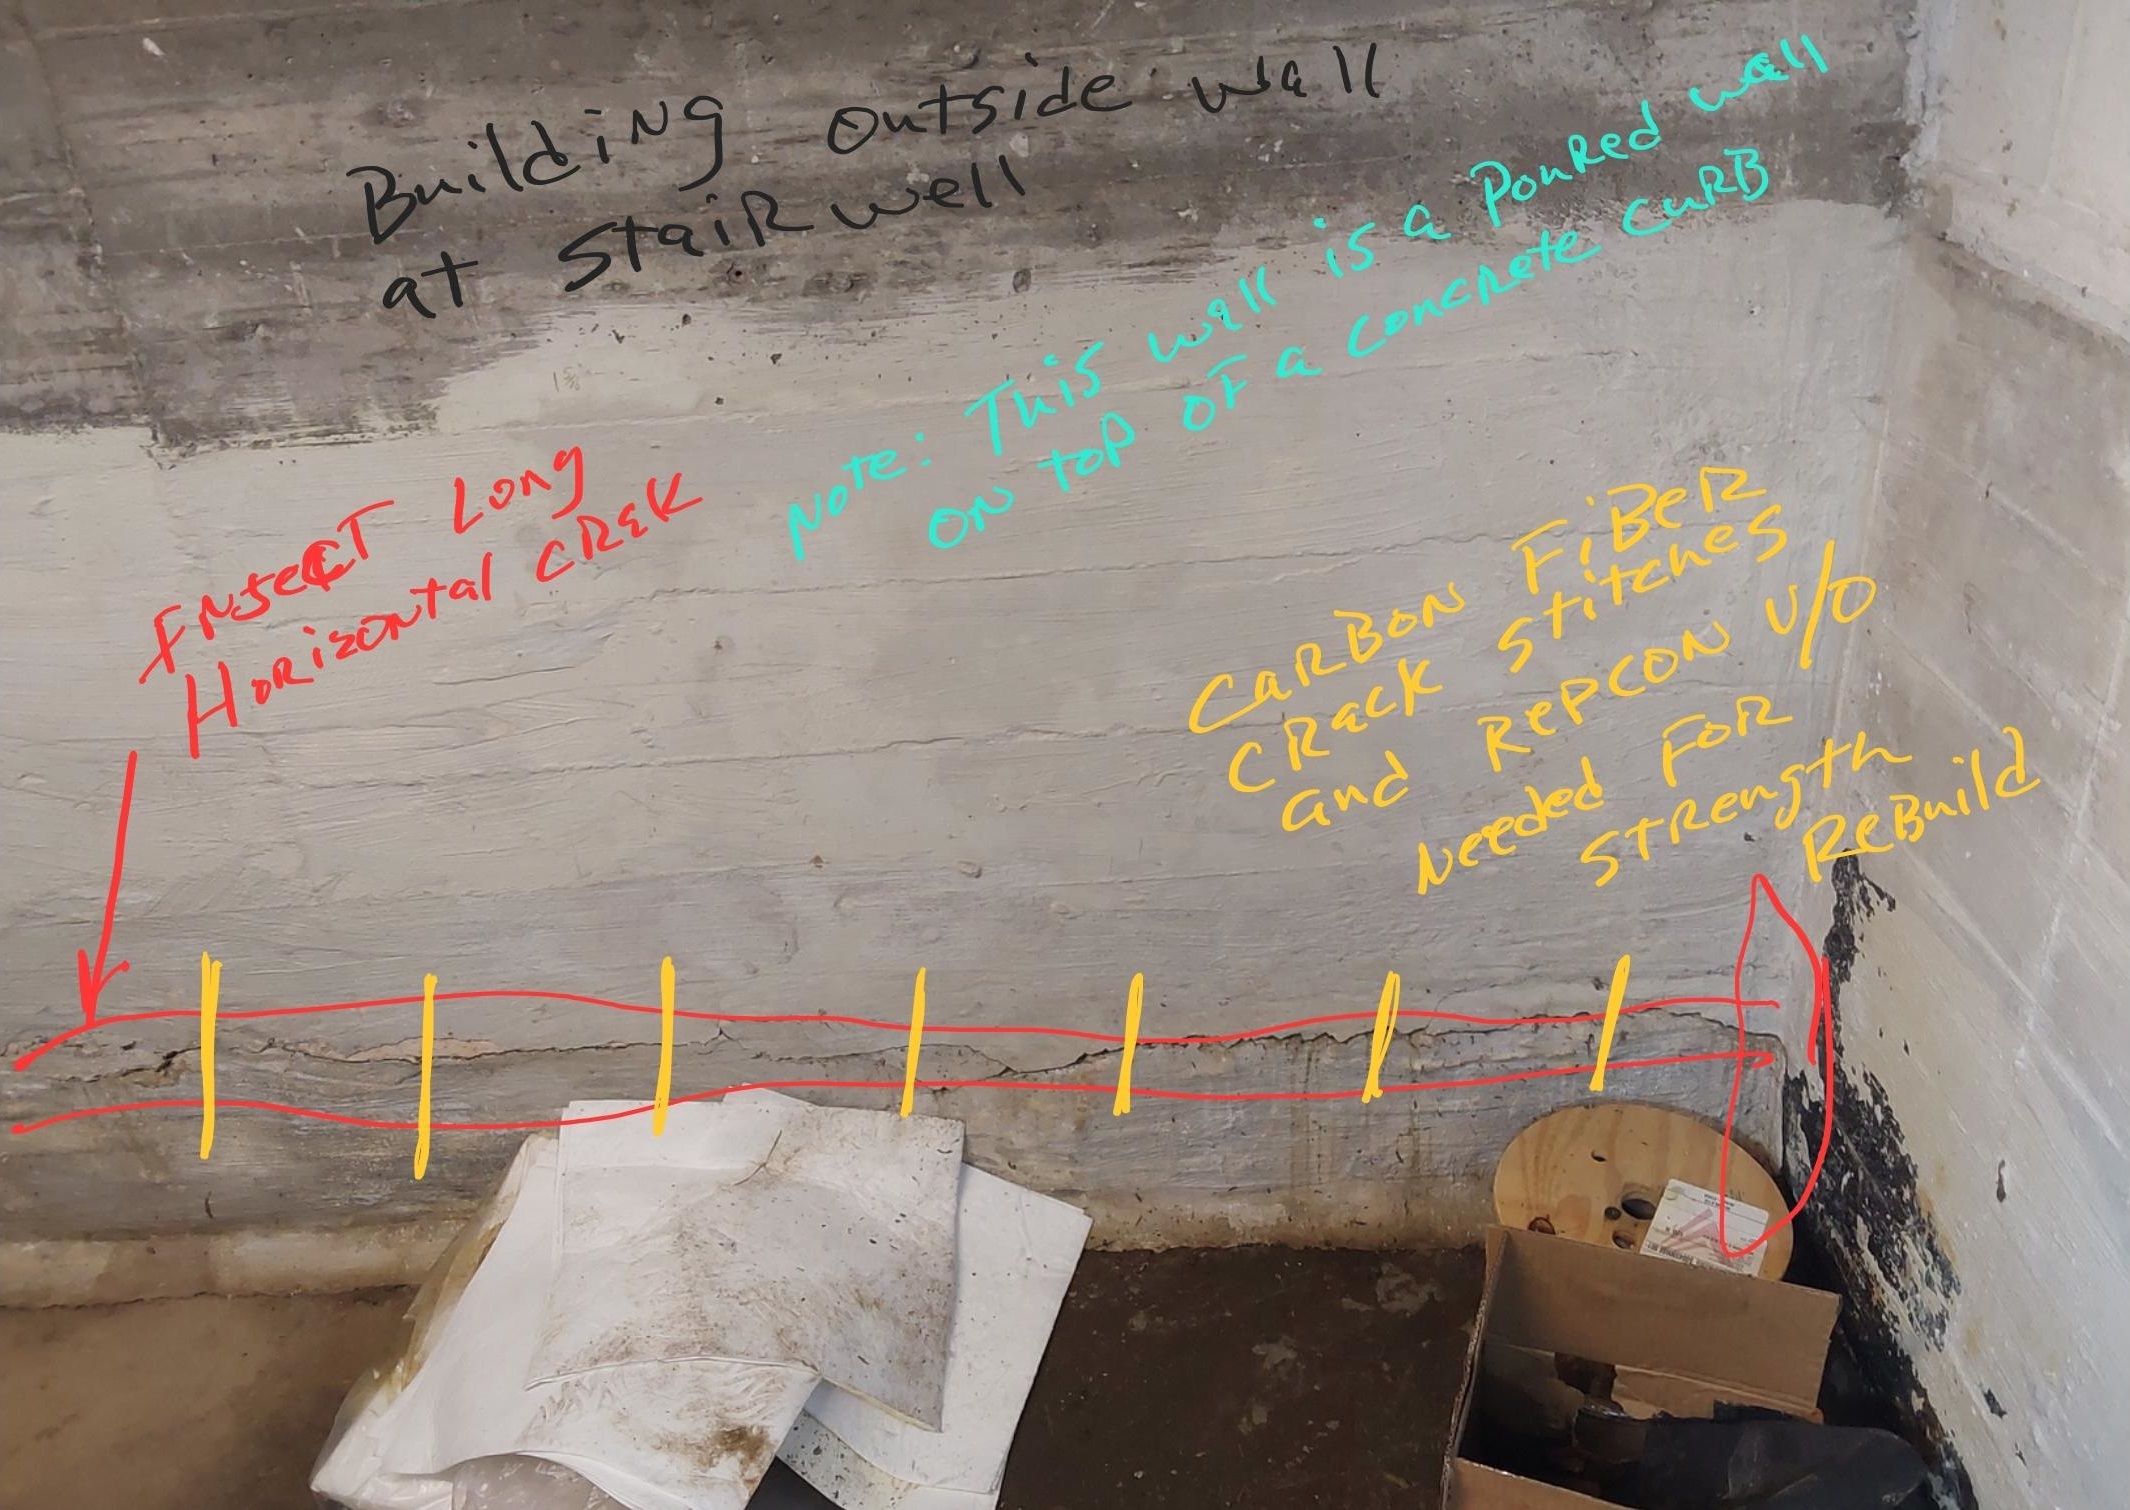 Building outside wall
at stairwell
Note: This wall is a Poured wall
on top of a concrete curb
Inject Long
Horizontal crak
Carbon Fiber
crack stitches
and Repcon V/O
Needed For
strength
ReBuild